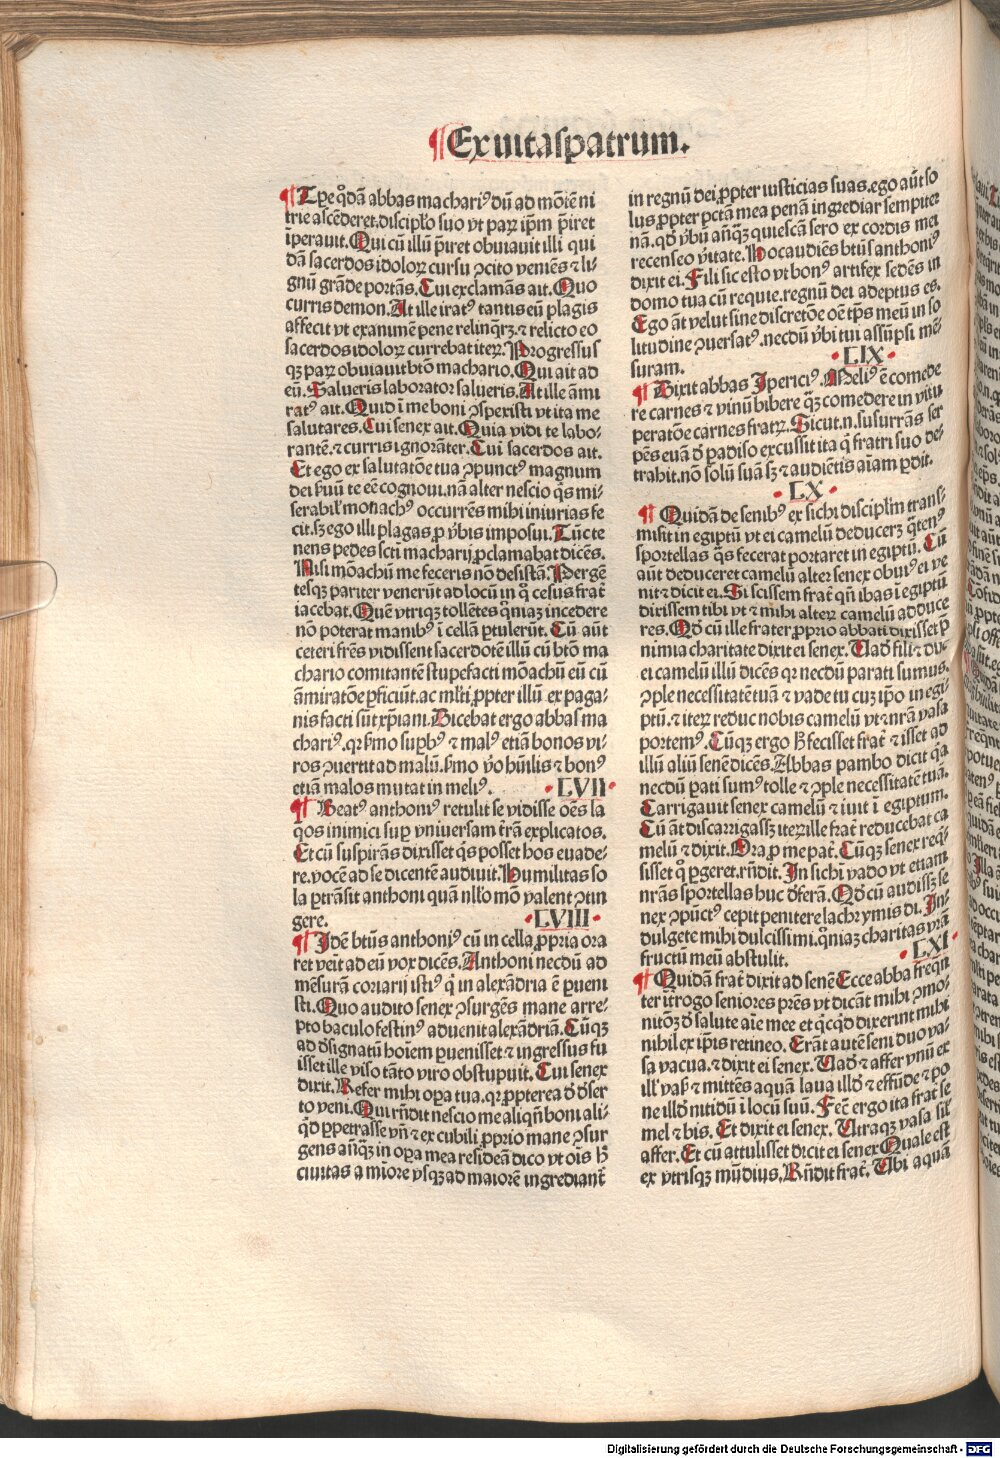 ¶Ex uitaspatrum.
¶Tꝑe q̇dā abbas machari⁹ dū ad mōtē ni
trie ascēderet.discip̄lo suo vt paꝝ ip̄m p̄iret
īperauit.Qui cū illū p̄iret obuiauit illi qui
dā sacerdos idoloꝝ cursu ꝯcito veniēs ⁊ li⸗
gnū grāde portās.Cui exclamās ait.Quo
curris demon.At ille irat⁹ tantis eū plagis
affecit vt exanimē pene relinq̄rꝫ.⁊ relicto eo
sacerdos idoloꝝ currebat iteꝝ.Progressus
qꝫ paꝝ obuiauit btō machario.Qui ait ad
eū.Salueris laborator salueris.At ille āmi
rat⁹ ait.Quid ī me boni ꝯspexisti vt ita me
salutares.Cui senex ait.Quia vidi te labo⸗
rantē.⁊ curris ignorāter.Cui sacerdos ait.
Et ego ex salutatōe tua ꝯpunct⁹ magnum
dei ẜuū te eē cognoui.nā alter nescio q̄s mi⸗
serabil' monach⁹ occurrēs mihi iniurias fe
cit.sꝫ ego illi plagas ꝓ v̄bis imposui.Tūc te
nens pedes sct̄i macharij ꝓclamabat dicēs.
Nisi mōachū me feceris nō desistā.Pergē
tesqꝫ pariter venerūt ad locū in q̄ cesus frat̄
iacebat.Quē vtriqꝫ tollētes q̄niaꝫ incedere
nō poterat manib⁹ ī cellā ꝑtulerūt.Cū aūt
ceteri frēs vidissent sacerdotē illū cū btō ma
chario comitantē stupefacti mōachū eū cū
āmiratōe ꝑficiūt.ac ml̄ti ꝓpter illū ex paga⸗
nis facti sūt xp̄iani.Dicebat ergo abbas ma
chari⁹.qꝛ ẜmo sup̄b⁹ ⁊ mal⁹ etiā bonos vi⸗
ros ꝯuertit ad malū.ẜmo v̄o hūilis ⁊ bon⁹
etiā malos mutat in meli⁹. •LVII•
¶Beat⁹ anthoni⁹ retulit se vidisse oēs la
q̄os inimici suꝑ vniuersam trā explicatos.
Et cū suspirās dixisset q̄s posset hos euade⸗
re.vocē ad se dicentē audiuit.Humilitas so
la ꝑtrāsit anthoni quā nll̄o mō valent ꝯtin
gere. •LVIII•
¶Idē btūs anthoni⁹ cū in cella ꝓpria ora
ret veīt ad eū vox dicēs.Anthoni necdū ad
mēsurā coriarij isti⁹ q̄ in alexādria ē ꝑueni
sti.Quo audito senex ꝯsurgēs mane arre⸗
pto baculo festin⁹ aduenit alexādriā.Cūqꝫ
ad d̄signatū hoīem ꝑuenisset ⁊ ingressus fu
isset ille viso tāto viro obstupuit.Cui senex
dixit.Refer mihi oꝑa tua.qꝛ ꝓpterea d̄ d̄ser
to veni.Qui rn̄dit nescio me aliqn̄ boni ali⸗
q̇d ꝑpetrasse vn̄ ⁊ ex cubili ꝓprio mane ꝯsur
gens an̄qꝫ in oꝑa mea resideā dico vt oīs h̄
ciuitas a miōre vsqꝫ ad maiorē ingrediant̄
in regnū dei ꝓpter iusticias suas.ego aūt so
lus ꝓpter pctā mea penā ingrediar sempiter
nā.qd̄ v̄bū an̄qꝫ quiescā sero ex cordis mei
recenseo v̄itate.Hoc audiēs btūs anthoni⁹
dixit ei.Fili sic esto vt bon⁹ artifex sedēs in
domo tua cū requie.regnū dei adeptus es.
Ego āt velut sine discretōe oē tꝑs meū in so
litudine ꝯuersat⁹.necdū v̄bi tui assūpsi mē⸗
suram. •LIX•
¶Dixit abbas Iperici⁹.Meli⁹ ē comede
re carnes ⁊ vinū bibere q̄ꝫ comedere in vitu
peratōe carnes fratꝝ.Sicut.n.susurrās ser
pēs euā d̄ padiso excussit ita q̄ fratri suo de⸗
trahit.nō solū suā sꝫ ⁊ audiētis aīam ꝑdit.
•LX•
¶Quidā de senib⁹ ex sichi discipl̄m trans⸗
misit in egiptū vt ei camelū deducerꝫ q̄ten⁹
sportellas q̄s fecerat portaret in egiptū.Cū
aūt deduceret camelū alter senex obui⁹ ei ve
nit ⁊ dicit ei.Si scissem frat̄ qn̄ ibas ī egiptū
dixissem tibi vt ⁊ mihi alterꝝ camelū adduce
res.Qd̄ cū ille frater ꝓprio abbati dixisset ꝑ
nimia charitate dixit ei senex.Uad̄ fili ⁊ duc
ei camelū illū dicēs qꝛ necdū parati sumus.
ꝯple necessitatē tuā ⁊ vade tu cuꝫ ip̄o in egi⸗
ptū.⁊ iteꝝ reduc nobis camelū vt ⁊ nr̄a vasa
portem⁹.Cūqꝫ ergo h̄ fecisset frat̄ ⁊ isset ad
illū aliū senē dicēs.Abbas pambo dicit q̄a
necdū ꝑati sum⁹ tolle ⁊ ꝯple necessitatē tuā.
Carrigauit senex camelū ⁊ iuit ī egiptum.
Cū āt discarrigassꝫ iteꝝ ille frat̄ reducebat ca
melū ⁊ dixit.Ora ꝓ me pat̄.Cūqꝫ senex req̄⸗
sisset q̄ ꝑgeret.rn̄dit.In sichī vado vt etiam
nr̄as sportellas huc d̄ferā.Qd̄ cū audissꝫ se
nex ꝯpūct⁹ cepit penitere lachrymis di.In⸗
dulgete mihi dulcissimi.q̄niaꝫ charitas vr̄ā
fructū meū abstulit. •LXI•
¶Quidā frat̄ dixit ad senē Ecce abba freq̄n
ter īt̄rogo seniores prēs vt dicāt mihi ꝯmo⸗
nitōꝫ d̄ salute aīe mee et q̇cq̇d dixerint mihi
nihil ex ip̄is retineo.Erāt autē seni duo va⸗
sa vacua.⁊ dixit ei senex.Uad̄ ⁊ affer vnū ex
ill' vas̄ ⁊ mittēs aquā laua illd̄ ⁊ effūde ⁊ po
ne illd̄ nitidū ī locū suū.Fec̄ ergo ita frat̄ se
mel ⁊ bis.Et dixit ei senex.Utraqꝫ vasa sil̄
affer.Et cū attulisset dicit ei senex Quale est
ex vtrisqꝫ mūdius.Rn̄dit frat̄.Ubi aquā
Digitalisierung gefördert durch die Deutsche Forschungsgemeinschaft - DFG